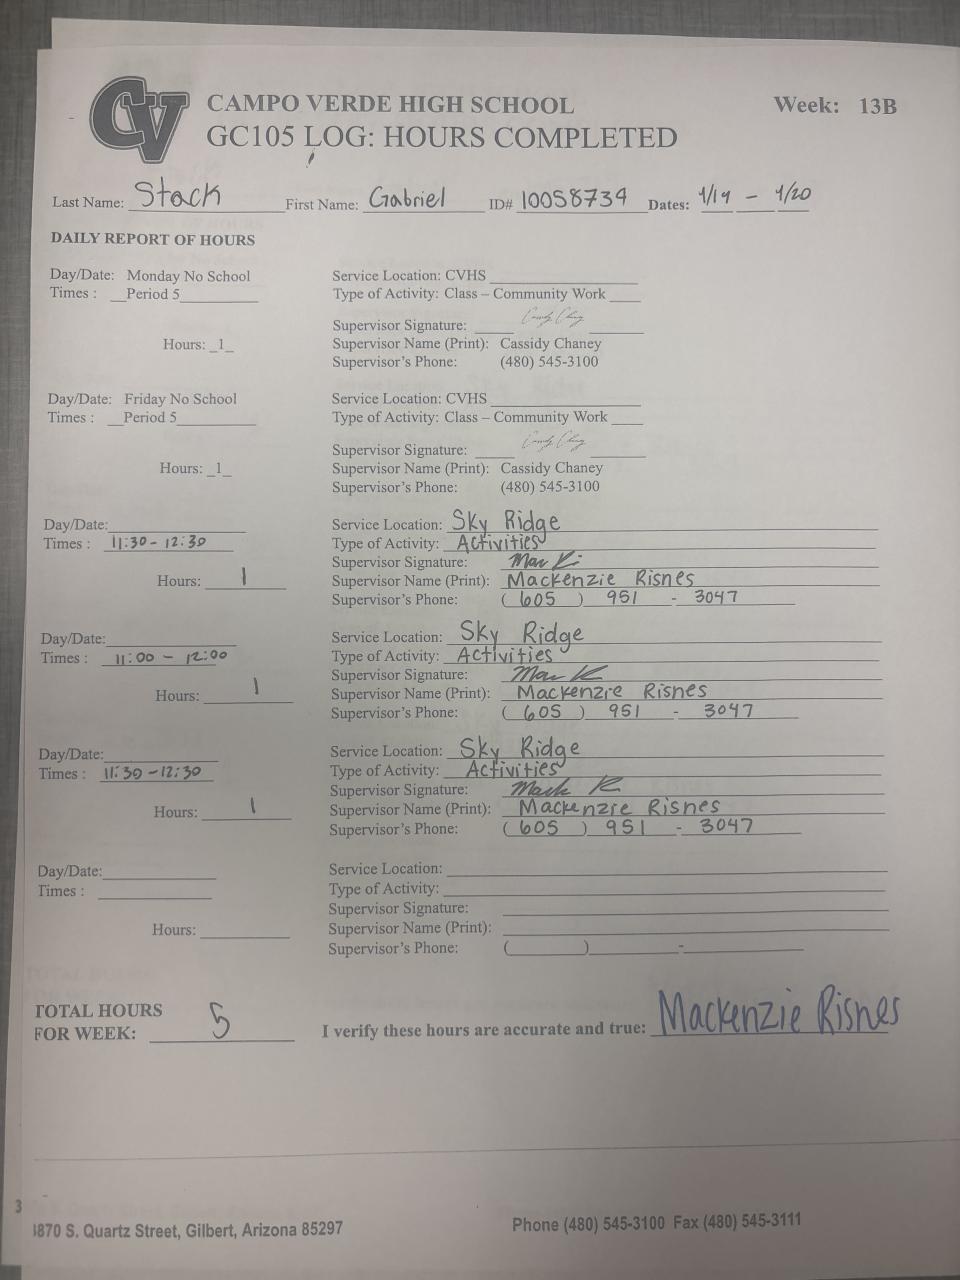 CV
CAMPO VERDE HIGH SCHOOL Week: 13B
GC105 LOG: HOURS COMPLETED
Last Name: Stack First Name: Gabriel ID# 10058734 Dates: 4/19 - 4/20
DAILY REPORT OF HOURS
Day/Date: Monday No School Service Location: CVHS
Times : Period 5 Type of Activity: Class – Community Work
Supervisor Signature:
Hours: 1 Supervisor Name (Print): Cassidy Chaney
Supervisor's Phone: (480) 545-3100
Day/Date: Friday No School Service Location: CVHS
Times : Period 5 Type of Activity: Class – Community Work
Supervisor Signature:
Hours: 1 Supervisor Name (Print): Cassidy Chaney
Supervisor's Phone: (480) 545-3100
Day/Date: Service Location: Sky Ridge
Times : 11:30 - 12:30 Type of Activity: Activities
Supervisor Signature:
Hours: 1 Supervisor Name (Print): Mackenzie Risnes
Supervisor's Phone: (605) 951 - 3047
Day/Date: Service Location: Sky Ridge
Times : 11:00 - 12:00 Type of Activity: Activities
Supervisor Signature:
Hours: 1 Supervisor Name (Print): Mackenzie Risnes
Supervisor's Phone: (605) 951 - 3047
Day/Date: Service Location: Sky Ridge
Times : 11:30 - 12:30 Type of Activity: Activities
Supervisor Signature:
Hours: 1 Supervisor Name (Print): Mackenzie Risnes
Supervisor's Phone: (605) 951 - 3047
Day/Date: Service Location:
Times : Type of Activity:
Supervisor Signature:
Hours: Supervisor Name (Print):
Supervisor's Phone: ( ) -
TOTAL HOURS
FOR WEEK: 5 I verify these hours are accurate and true: Mackenzie Risnes
3
870 S. Quartz Street, Gilbert, Arizona 85297 Phone (480) 545-3100 Fax (480) 545-3111